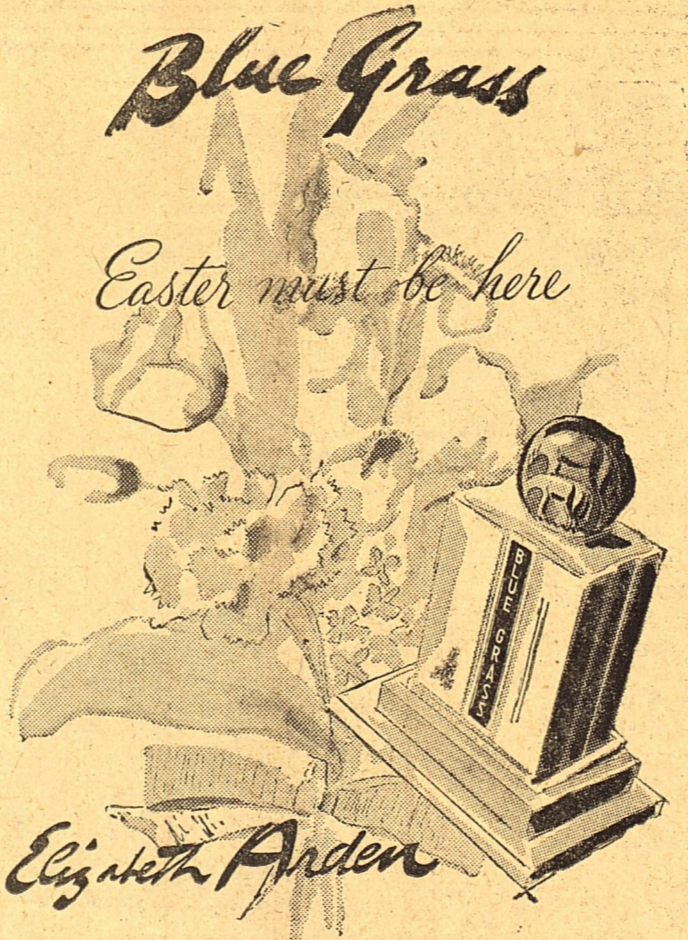 Blue Grass
Easter must be here
BLUE GRASS
Elizabeth Arden